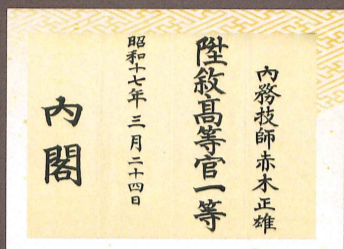 內務技師赤木正雄
陞敘高等官一等
昭和十七年三月二十四日
內閣